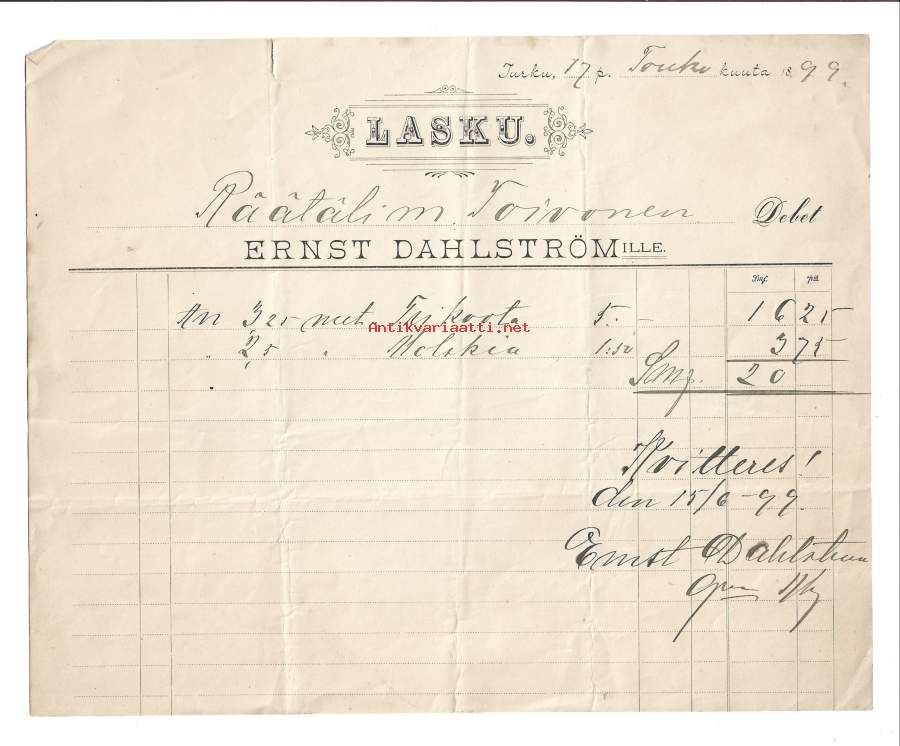 Turku, 17 p. Touko kuuta 1899.
LASKU.
Räätälim. Toivonen Debet
ERNST DAHLSTRÖMILLE.
Smf. piä
An 3,25 met. Trikoota 5.- 16 25
" 2,5 " Molskia 1:50 3 75
Smf. 20
Antikvariaatti.net
Kvitteres!
den 15/6 -99.
Ernst Dahlström